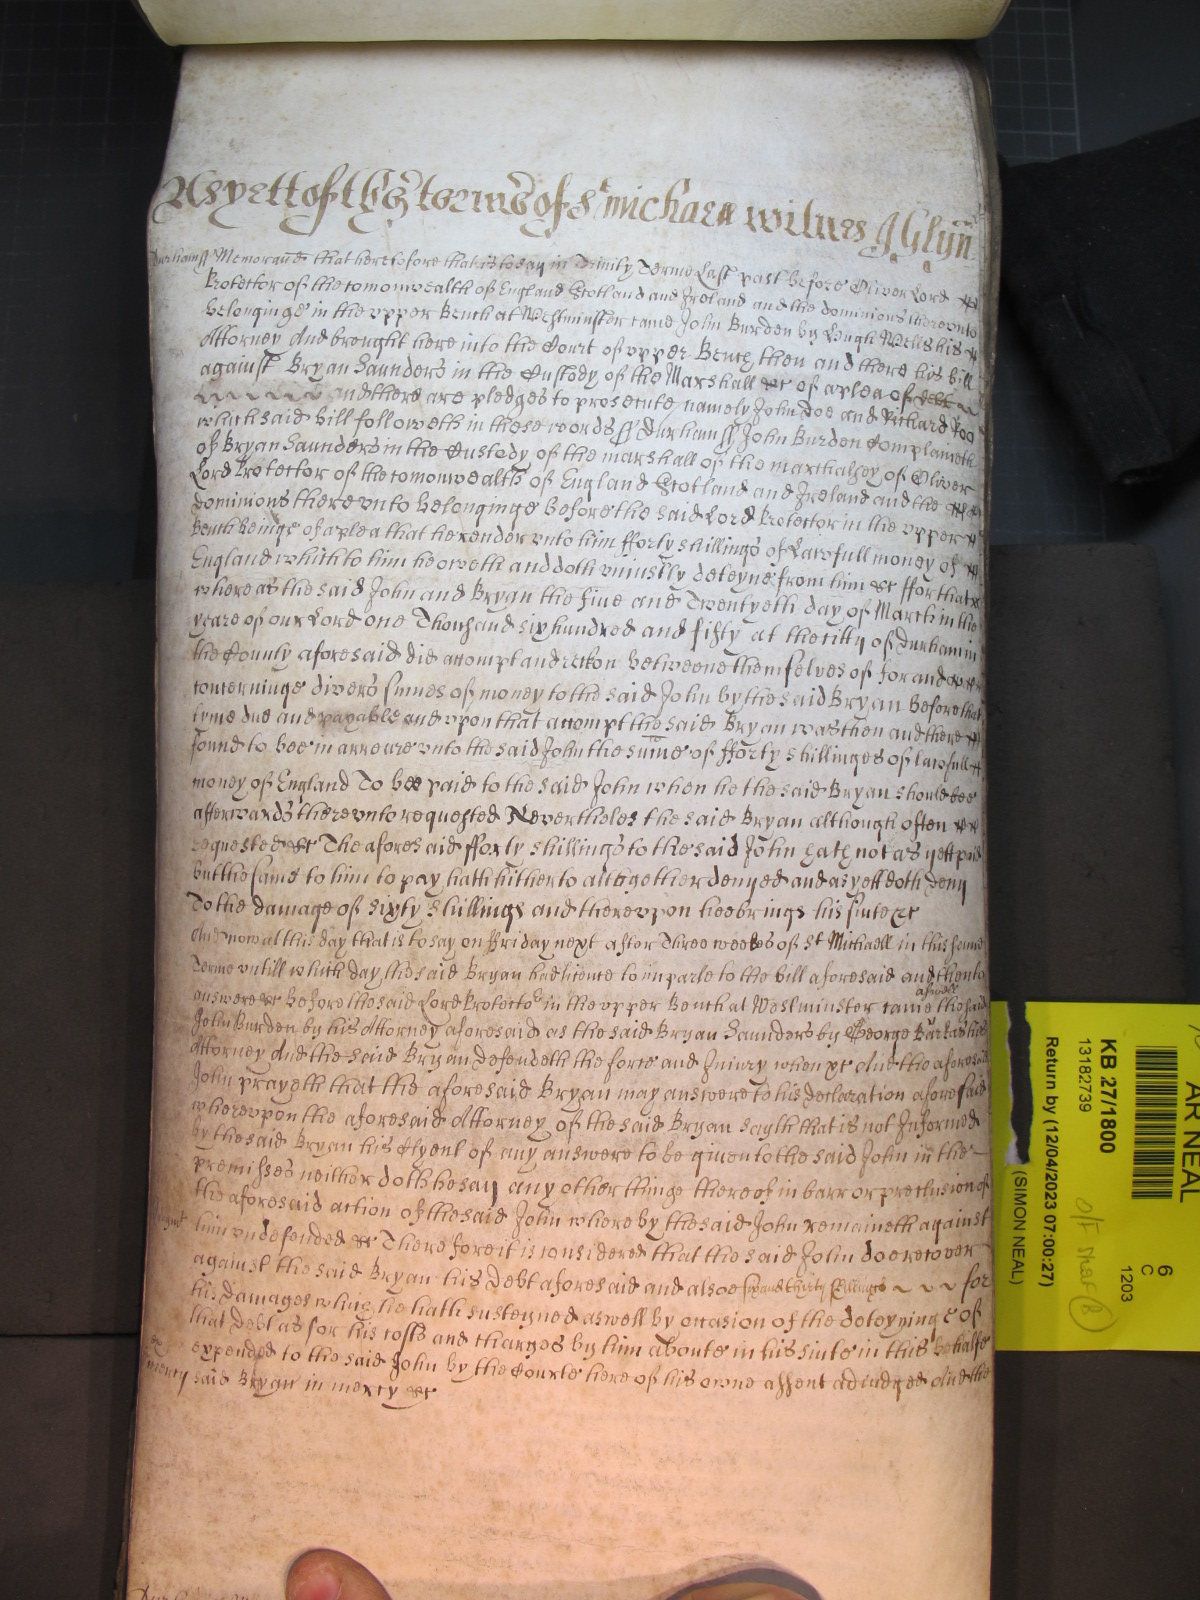 As yett of the terme of St Michaell witnes J Glyn
Durham ss Memorand that heretofore that is to say in Trinity Terme Last past before Oliver Lord
Protector of the comonwealth of England Scotland and Ireland and the dominions thereunto
belonginge in the upper Bench at Westminster came John Burden by Hugh Wells his
Attorney And brought here into the Court of upper Bench then and there his bill
against Bryan Saunders in the Custody of the Marshall &c of a plea of debt
and there are pledges to prosecute namely John Doe and Richard Roo
which said bill followeth in these words ss Durham ss John Burden Complaineth
of Bryan Saunders in the Custody of the marshall of the marshalsey of Oliver
Lord Protector of the comonwealth of England Scotland and Ireland and the
dominions there unto belonginge before the said Lord Protector in the upper
Bench beinge of a plea that he render unto him fforty shillings of Lawfull money of
England which to him he oweth and doth uniustly deteyne from him &c ffor that
where as the said John and Bryan the five and Twentyeth day of March in the
yeare of our Lord one Thousand six hundred and fifty at the citty of Durham in
the County aforesaid did accompt and reckon betweene themselves of for and
concerninge divers sumes of money to the said John by the said Bryan before that
tyme due and payable and upon that accompt the said Bryan was then and there
found to bee in arreare unto the said John the sume of fforty shillinges of lawfull
money of England To bee paid to the said John when he the said Bryan should bee
afterwards thereunto requested Nevertheles the said Bryan although often
requested &c The aforesaid fforty shillings to the said John hath not as yett paid
but the same to him to pay hath hitherto altogether denyed and as yett doth deny
To the damage of sixty shillings and thereupon hee brings his suite &c
And now at this day that is to say on Friday next after Three weekes of St Michaell in this same
Terme untill which day the said Bryan had licence to imparle to the bill aforesaid and then to
answere &c before the said Lord Protector in the upper Bench at Westminster came aswell the said
John Burden by his Attorney aforesaid as the said Bryan Saunders by George Barkas his
Attorney And the said Bryan Defendeth the force and Iniury when &c And the aforesaid
John prayeth that the aforesaid Bryan may answere to his Declaration aforesaid
whereupon the aforesaid Attorney of the said Bryan sayth that is not Informed
by the said Bryan his Clyent of any answere to be given to the said John in the
premisses neither doth he say any other thinge thereof in barr or preclusion of
the aforesaid action of the said John whereby the said John remaineth against
him undefended &c Therefore it is considered that the said John doe recover
against the said Bryan his Debt aforesaid and alsoe six and thirty shillings for
his damages which he hath susteyned aswell by occasion of the deteyninge of
that debt as for his costs and charges by him aboute in his suite in this behalfe
expended to the said John by the Courte here of his owne assent adiudged And the
mercy said Bryan in mercy &c
AR NEAL
KB 27/1800
13182739
Return by (12/04/2023 07:00:27)
(SIMON NEAL)
6
C
1203